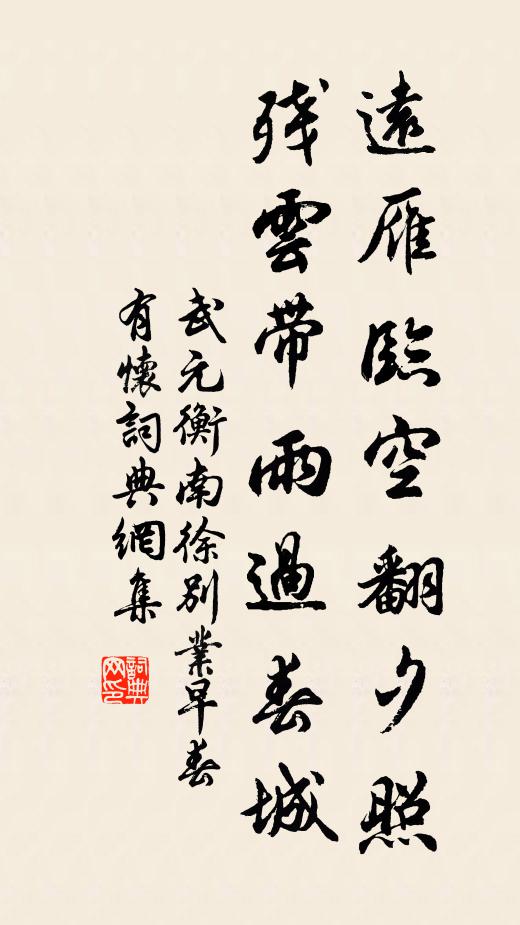 遠雁臨空翻夕照
殘雲帶雨過春城
武元衡南徐别業早春
有懷詞典網集
詞典
网印